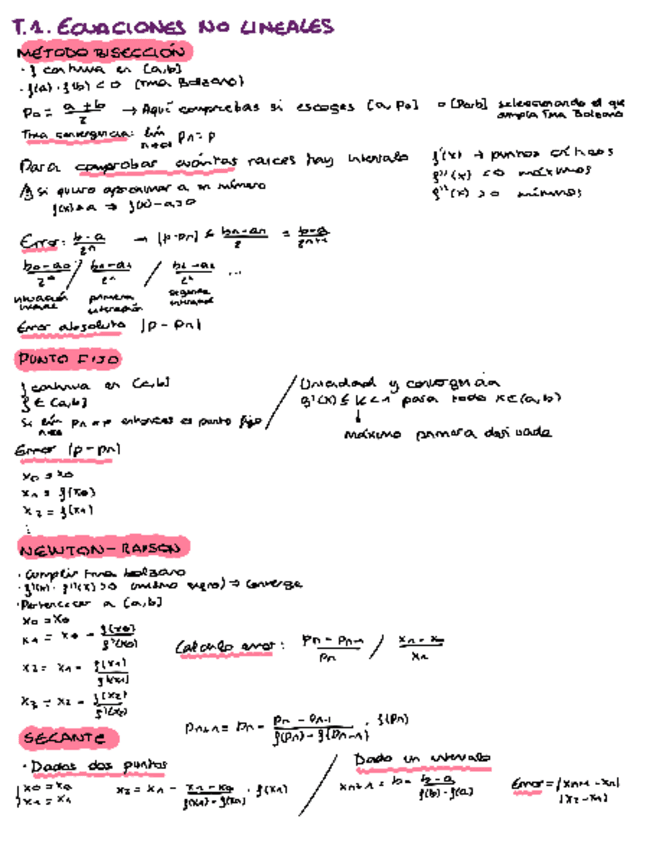 T.1. ECUACIONES NO LINEALES
MÉTODO BISECCIÓN
· f continua en [a,b]
· f(a) · f(b) < 0 (Tma Bolzano)
p0 = a+b/2 → Aquí compruebas si escoges [a, p0] o [p0,b] seleccionando el que cumpla Tma Bolzano
Tma convergencia: lím n→∞ pn = p
Para comprobar cuántas raíces hay intervalo f'(x) → puntos críticos
f''(x) < 0 máximos
f''(x) > 0 mínimos
si quiero aproximar a un número
f(x) = a → f(x) - a = 0
Error: b-a/2^n → |p-pn| ≤ bn-an/2 = b-a/2^n+1
b0-a0/2^0 / b1-a1/2^1 / b2-a2/2^2 ...
primera iteración
segunda
Error absoluto |p - pn|
PUNTO FIJO
f continua en [a,b]
f ∈ [a,b]
Si lím n→∞ pn = p entonces es punto fijo
Unicidad y convergencia
g'(x) ≤ k < 1 para todo x ∈ (a,b)
↓
máximo primera derivada
Error |p - pn|
x0 = x0
x1 = f(x0)
x2 = f(x1)
⋮
NEWTON-RAPSON
· Cumplir tma bolzano
· f(x) · f''(x) > 0 (mismo signo) ⇒ converge
· Pertenecer a [a,b]
x0 = x0
x1 = x0 - f(x0)/f'(x0)
x2 = x1 - f(x1)/f'(x1)
x3 = x2 - f(x2)/f'(x2)
Calculo error: pn - pn-1/pn / x1 - x0/x1
pn+1 = pn - pn - pn-1/f(pn) - f(pn-1) · f(pn)
SECANTE
· Dadas dos puntos
x0 = x0
x1 = x1
x2 = x1 - x1 - x0/f(x1) - f(x0) · f(x1)
Dado un intervalo
xn+1 = b - b-a/f(b) - f(a)
Error = |xn+1 - xn|
|x2 - x1|